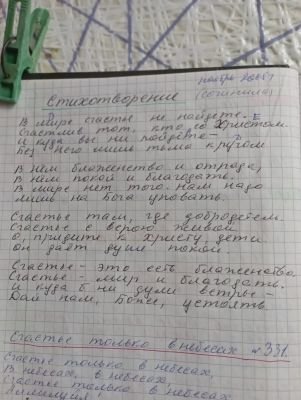 ноябрь 2005 г
Стихотворение (сочинила)
В мире счастье не найдете.
Счастлив тот, кто со Христом
И куда вы ни пойдёте –
Без Него лишь тьма кругом
В Нём блаженство и отрада,
В Нём покой и благодать.
В мире нет того. Нам надо
Лишь на Бога уповать.
Счастье там, где добродетель.
Счастье с верою живой
О, придите к Христу, дети
Он даёт душе покой
Счастье – это есть блаженство,
Счастье – мир и благодать.
И куда б ни дули ветры –
Дай нам, Боже, устоять.
Счастье только в небесах № 331.
Счастье только в небесах,
В небесах, в небесах,
Счастье только в небесах
Аллилуия!